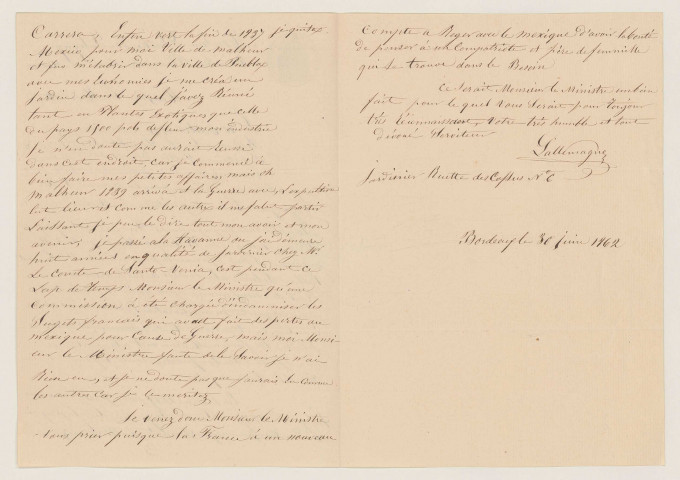 Carrera, Enfin vert la fin de 1837 je quitai
Mexico pour moi Ville de malheur
et fus m'établir dans la Ville de Puebla
avec mes Economies je me créa un
jardin dans le quel j'avez Réunie
tant en Plantes Exotiques que celle
du pays 1500 pots de fleur mon industrie
je n'en doute pas aurait Réussi
dans cest endroit, car je Commencé à
bien faire mes petites affaires mais oh
malheur 1839 arriva et la Guerre avec
lieu et comme les autre il me falut partir
Laissant je peu le dire tout mon avoir et mon
avenir, je passé à la Havanne ou j'ai démeuré
huit années en qualité de jardinier chez Mr.
Le Comte de Santo-Venia, c'est pendant ce
Laps de temps Monsieur le Ministre qu'une
Commission à été chargée d'indamniser les
Sujets français qui avait fait des pertes au
mexique pour Cause de Guerre, mais moi Monsi-
eur le Ministre faute de le Savoir je n'ai
Rien eu, et je ne doute pas que j'aurais eu comme
les autres car je le méritez
Je venez donc Monsieur le Ministre
vous prier puisque la France à un nouveau
compte à Régler avec le mexique d'avoir la bonté
de penser à un Compatriote et père de famille
qui se trouve dans le Besoin
Ce serait Monsieur le Ministre un bien
fait pour le quel Vous Serait pour toujour
très Reconnaissant, Votre très humble et tout
dévoué Serviteur
Lallemagne
Jardinier Ruette des Cossus N° 6
Bordeaux le 30 juin 1862